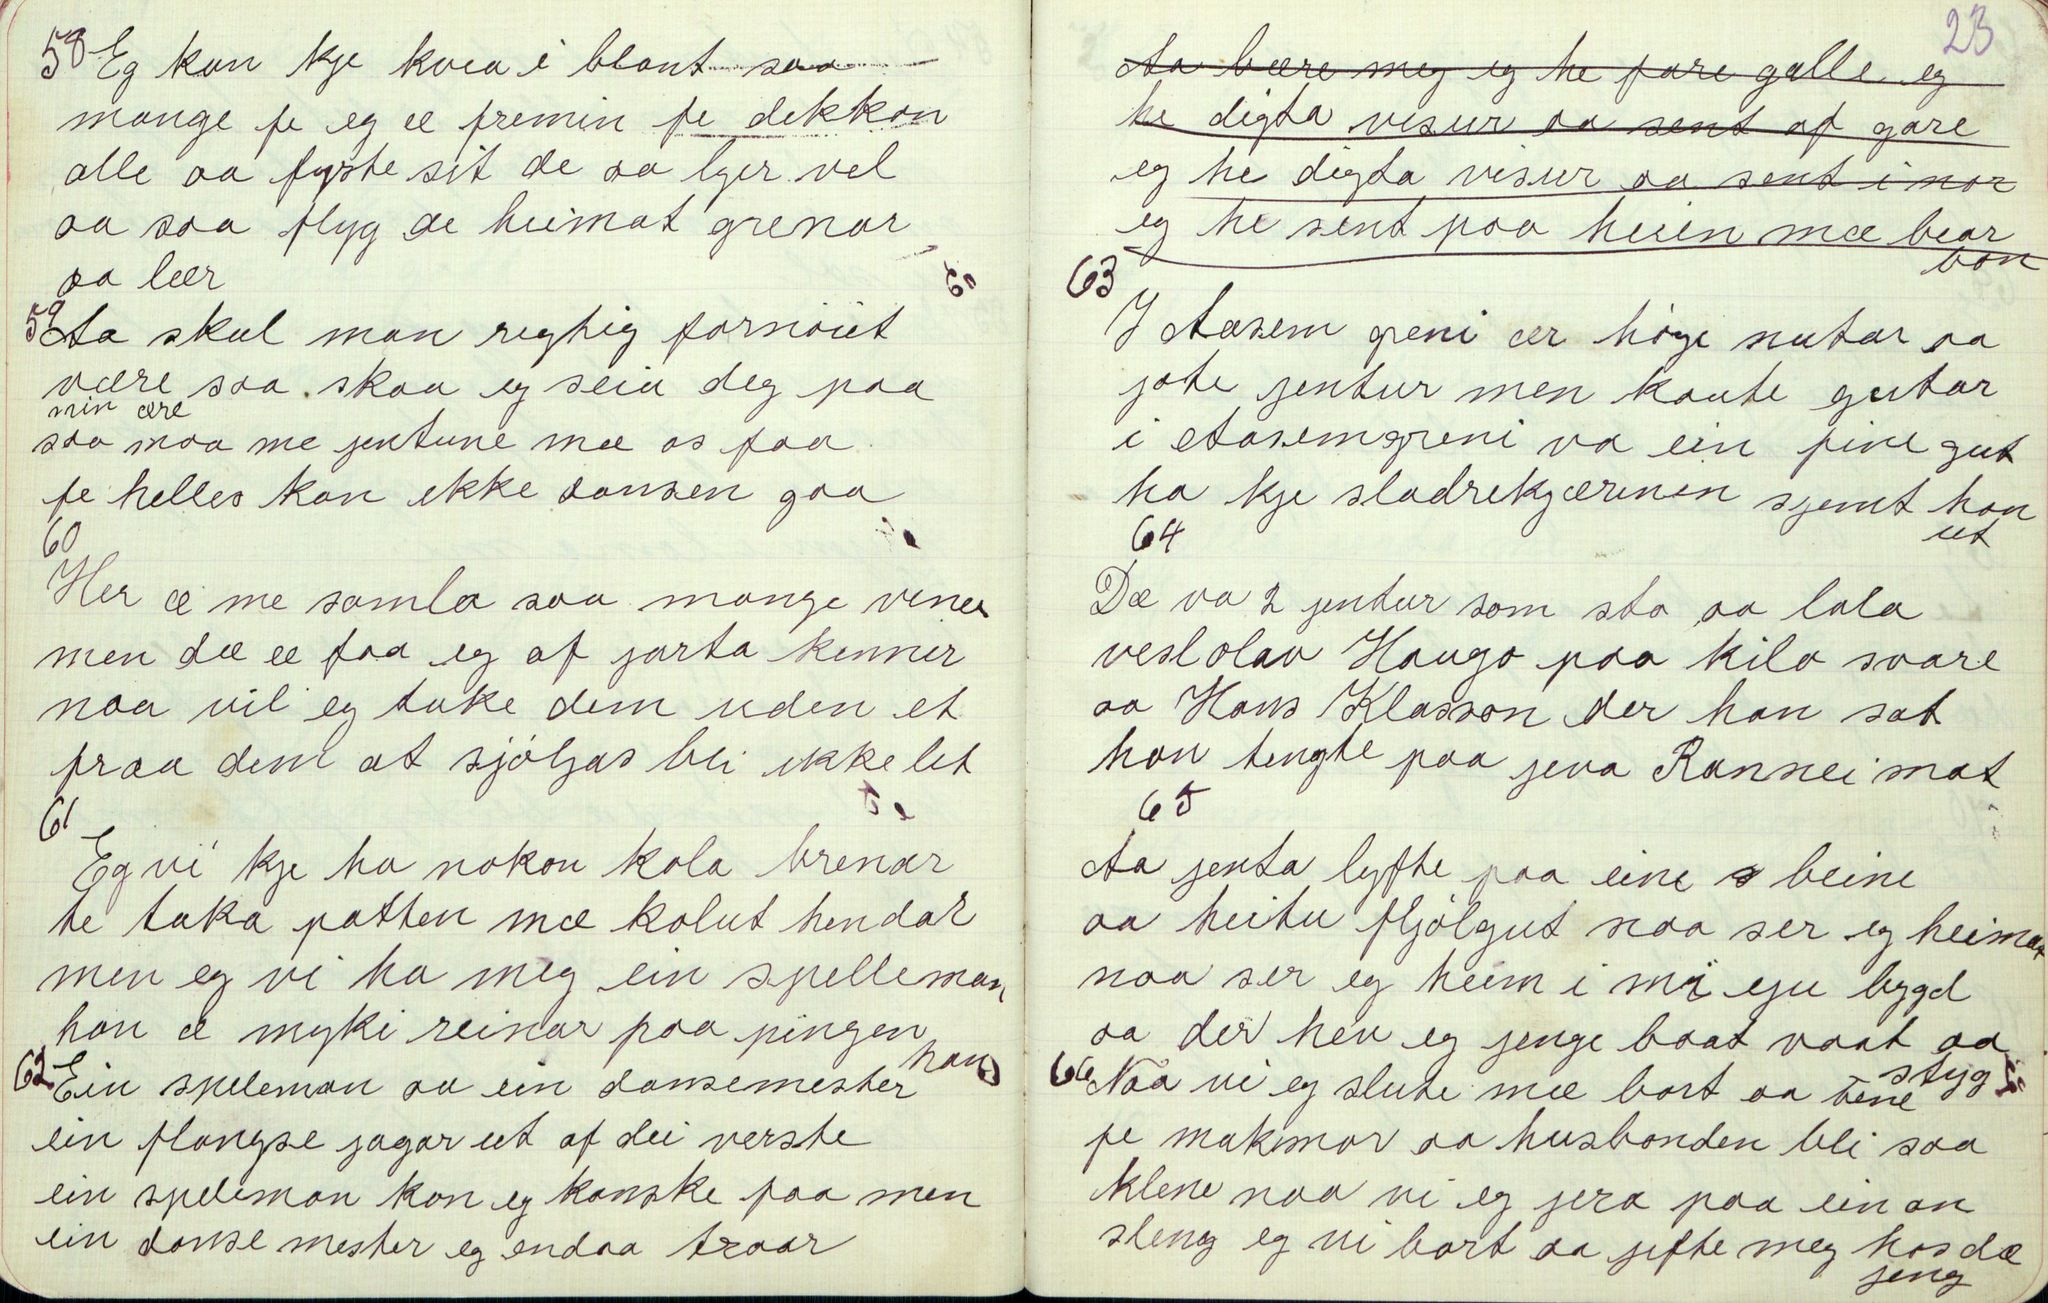 58 Eg kan kje kvea i blant saa
mange fe eg æ fremin fe dekkan
alle aa fyste sit de aa lyer vel
aa saa flyg de heimat grenar
aa lær
59 Aa skul man regtig fornöiet
være saa skaa eg seia deg paa
min ære
saa maa me jentune mæ os faa
fe helles kan ikke dansen gaa
60
Her æ me samla saa mange vener
men dæ æ faa eg af jarta kenner
naa vil eg take dem uden et
fraa dem at sjölgas bli ikke let
61
Eg vi kje ha nokon kola brenar
te taka patten mæ kolut hendar
men eg vi ha meg ein spelleman
han æ myki reinar paa pingen
han
62 Ein speleman aa ein dansemester
ein flangse jagar et af dei verste
ein speleman kan eg kanske faa men
ein danse mester eg endaa traar
23
Aa bære meg eg he fare galle eg
he digta visur aa sent af gare
eg he digta visur aa sent i nor
eg he sent paa heien mæ bear
bon
63
I Aasem greni ær höge nutar aa
jote jentur men kaute gutar
i Aasemgreni va ein fine gut
ha kje sladrekjærenin sjemt han
ut
64
Dæ va 2 jentur som sto aa lala
vesl olav Haugo paa kilo svare
aa Hans Klasson der han sat
han tengte paa jeva Rannei mat
65
Aa jenta lyfte paa eine beine
aa heitu fljölgut naa ser eg heimat
naa ser eg heim i mi eju bygd
aa der hev eg jenge baat vaat aa
styg
66 Naa vi eg slute mæ bort aa tene
fe makmor aa husbonden bli saa
klene naa vi eg jera paa ein an
sleng eg vi bort aa jifte meg hos dæ
jeng